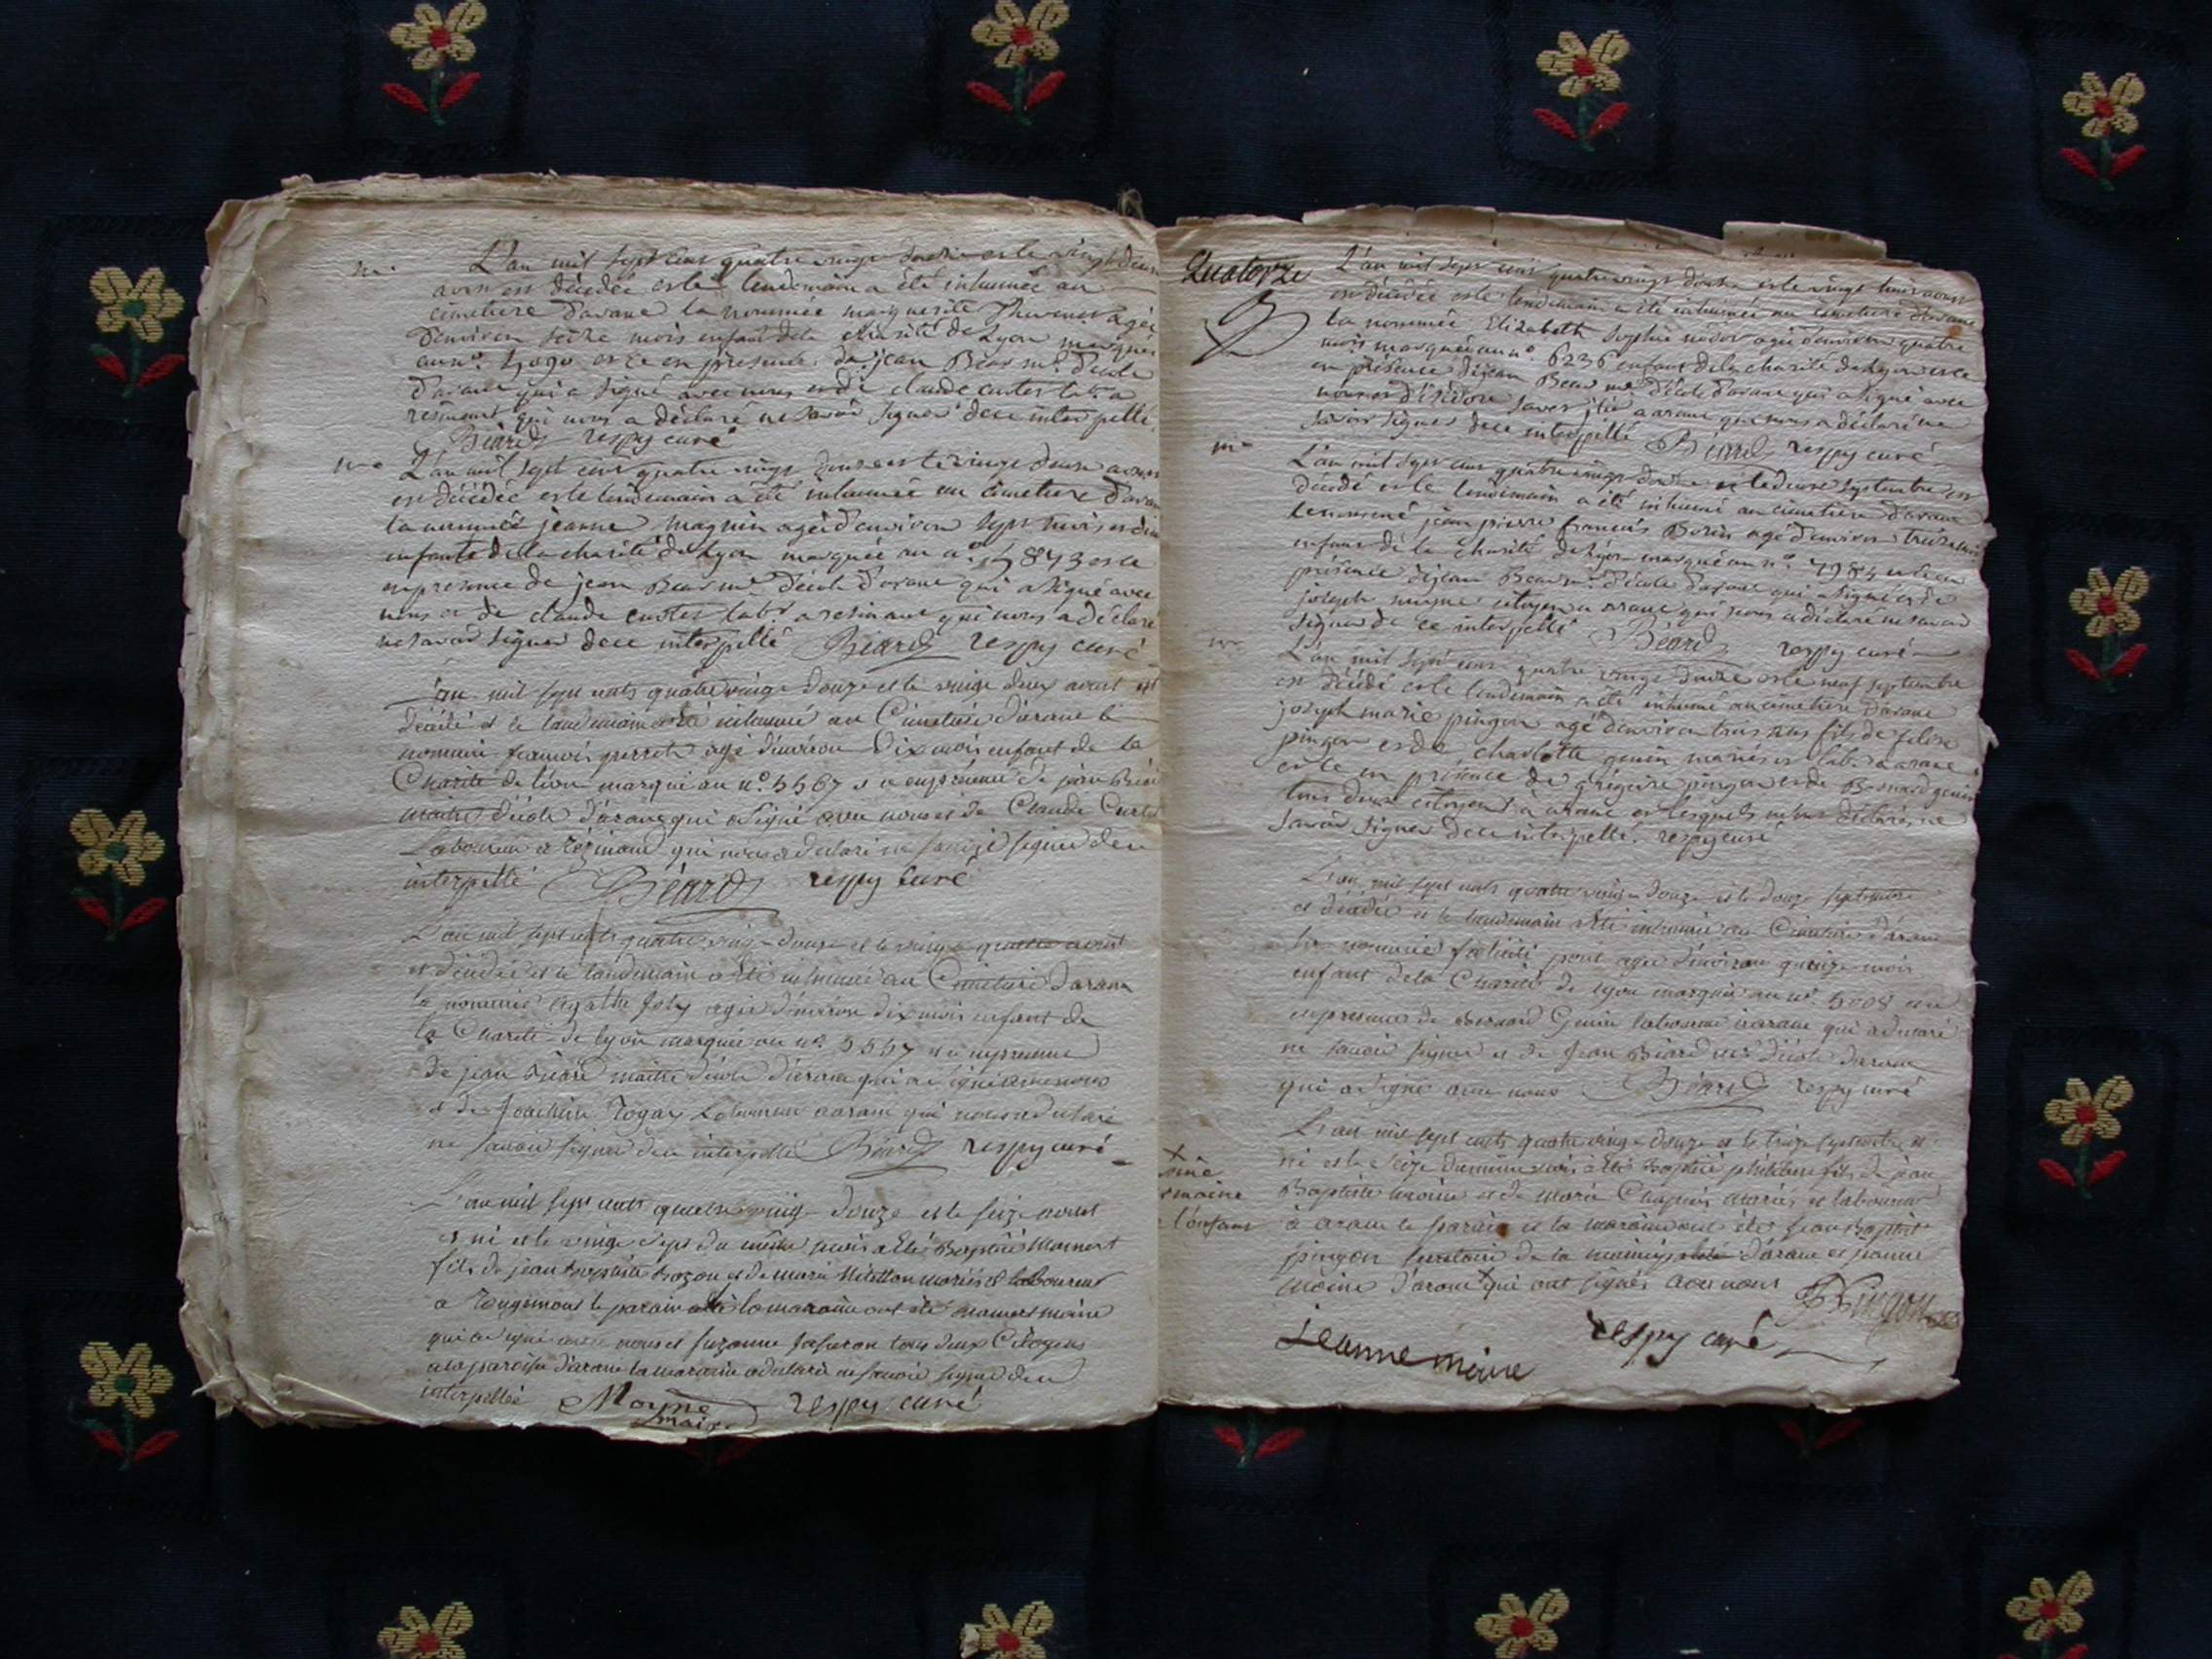 L'an mil sept cens quatre vingt douze et le vingt deux
aoust est décédée et le lendemain a été inhumée au
cimetiere d'arane la nommée marguerite agée
d'environ seize mois enfant dela charité de Lyon marquée
au n.o et ce en présence de jean Bear m.e d'école
d'arane qui a signé avec nous et de claude cartet lab.r a
resinant qui nous a déclaré ne savoir signer de ce interpellé
Béard respy curé
L'an mil sept cens quatre vingt douze et le vingt deux aoust
est décédée et le lendemain a été inhumée au cimetiere d'arane
la nommée jeanne magnin agée d'environ sept mois et demi
enfant de la charité de Lyon marquée au n.o 5843 et ce
en présence de jean Bear m.e d'école d'arane qui a signé avec
nous et de claude cartet lab.r a resinant qui nous a déclaré
ne savoir signer de ce interpellé Béard respy curé
L'an mil sept cents quatre vingt douze et le vingt deux aoust est
décédé et le landemain a été inhumé au Cimetière d'arane le
nommé françois perret agé d'environ dix mois enfant de la
Charité de lion marqué au n.o 5567 et ce en présence de jean Béard
maitre d'école d'arane qui a signé avec nous et de Claude Curtet
Laboureur a résinand qui nous a declaré ne savoir signer de ce
interpellé Béard respy Curé
L'an mil sept cents quatre vingt douze et le vingt quatre aoust
est décédée et le landemain a été inhumée au Cimetière d'arane
la nommée Agathe Joly agée d'environ dix mois enfant de
la Charité de lyon marquée au n.o 5557 et ce en présence
de jean Béard maitre d'école d'arane qui a signé avec nous
et de Joachim Togay Laboureur a arane qui nous a declaré
ne savoir signer de ce interpellé Béard respy curé
L'an mil sept cents quatre vingt douze et le seize aoust
est né et le vingt sept du même mois a été Baptisé Mamert
fils de jean baptiste et de marie mariés et laboureur
a rougemont le parain et la maraine ont été mamert moine
qui a signé avec nous et suzanne tous deux Citoyens
a la paroisse d'arane la maraine a declaré ne savoir signer de ce
interpellée Moyne maire respy curé
Quatorze
L'an mil sept cens quatre vingt douze et le vingt huit aoust
est décédée et le lendemain a été inhumée au cimetiere d'arane
la nommée Elizabeth Sophie agée d'environ quatre
mois marquée au n.o 6236 enfant dela charité de Lyon et ce
en présence de jean Bear m.e d'école d'arane qui a signé avec
nous et d'isidore a arane qui nous a déclaré ne
savoir signer de ce interpellé Béard respy curé
L'an mil sept cens quatre vingt douze et le deux septembre est
décédé et le lendemain a été inhumé au cimetiere d'arane
le nommé jean pierre françois Borin agé d'environ treize mois
enfant de la charité de Lyon marqué au n.o et ce en
présence de jean Bear m.e d'école d'arane qui a signé et de
joseph moyne citoyen a arane qui nous a déclaré ne savoir
signer de ce interpellé Béard respy curé
L'an mil sept cens quatre vingt douze et le neuf septembre
est décédé et le lendemain a été inhumé au cimetiere d'arane
joseph marie pingon agé d'environ trois ans fils de
pingon et de charlotte genin mariés et lab.rs a arane
et ce en présence de grégoire pingon et de Bernard genin
tous deux citoyens a arane et lesquels nous ont déclaré ne
savoir signer de ce interpellé. respy curé
L'an mil sept cents quatre vingt douze et le douze septembre
est décédée et le landemain a été inhumée au Cimetière d'arane
la nommée agée d'environ quinze mois
enfant dela Charité de lyon marquée au n.o 5008 et ce
en présence de Bernard Genin laboureur a arane qui a declaré
ne savoir signer et de Jean Béard m.e d'école d'arane
qui a signé avec nous Béard respy curé
L'an mil sept cents quatre vingt douze et le treize septembre est
né et le seize du même mois a été baptisé fils de jean
Baptiste moine et de marie mariés et laboureur
à arane le parain et la maraine ont été jean Baptiste
pingon secretaire de la municipalité d'arane et jeanne
moine d'arane qui ont signés avec nous Pingon
+
l'enfant
jeanne moine respy curé